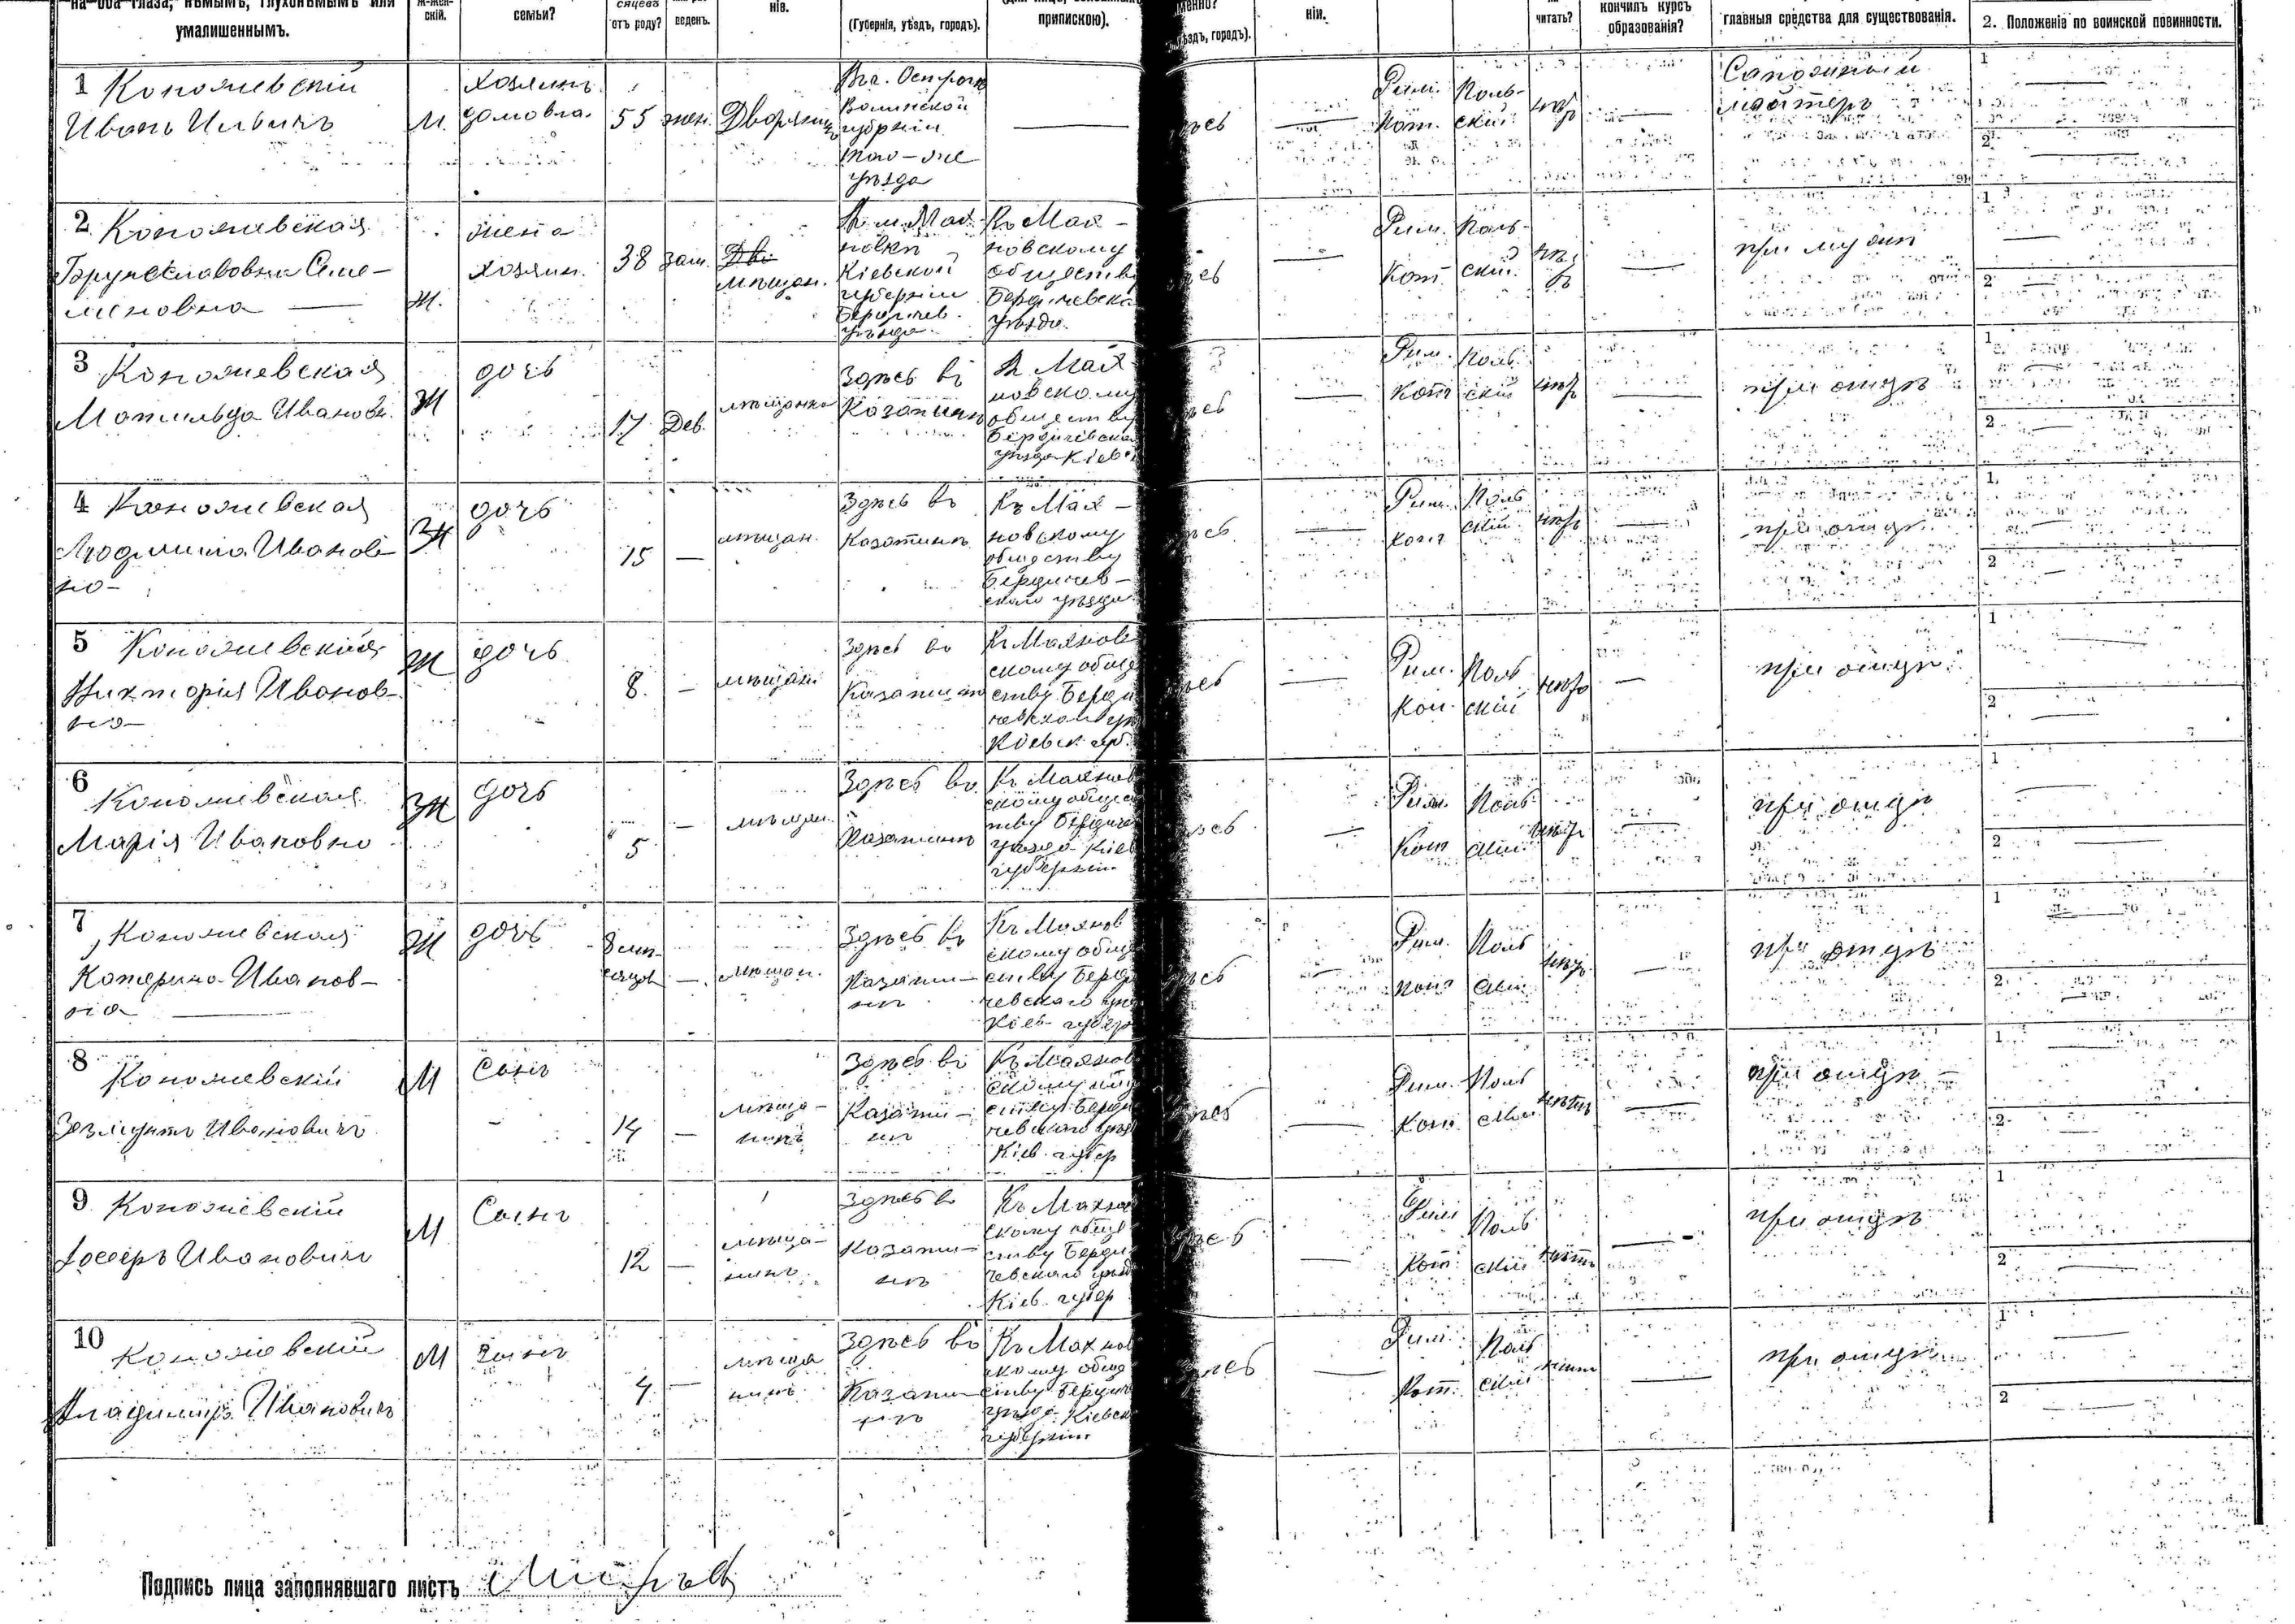 на оба глаза, нѣмымъ, глухонѣмымъ или умалишеннымъ.
ж-жен-скій.
семьи?
сяцевъ отъ роду?
веденъ.
ніе.
(Губернія, уѣздъ, городъ).
припискою).
менно?
ѣздъ, городъ).
ніи.
читать?
кончилъ курсъ образованія?
главныя средства для существованія.
2. Положеніе по воинской повинности.
1 Коножевскій
Иванъ
М.
хозяинъ
55
жен.
Дворянинъ
Волынской
губерніи
того-же
уѣзда
Рим. Поль-
Кат. скій
Сапожный
мастеръ
1
2
2 Коножевская
Ж.
жена
хозяин.
38
зам.
мѣщан.
Кіевской
губерніи
Бердичев.
уѣзда.
Къ Мах-
новскому
обществу
Бердичевска
уѣзда.
Рим. Поль-
Кат. скій
при мужѣ
1
2
3 Коножевская
Матильда Иванов.
Ж
дочь
17
Дев.
мѣщанка
Здѣсь въ
Казатинѣ
Мах
новскому
обществу
Бердичевска
уѣзда Кіев
Рим. Поль
Кат скій
при отцѣ
1
2
4 Коножевская
Людмила Иванов-
на-
Ж
дочь
15
мѣщан.
Здѣсь въ
Казатинѣ
Къ Мах-
новскому
обществу
Бердичев-
скаго уѣзда
Рим. Поль
кат скій
при отцѣ
1
2
5 Коножевская
Виктория Иванов-
на-
Ж
дочь
8.
мѣщан
Здѣсь въ
Казатин
Къ Махнов
скому обще
ству Берди
чевскаго уѣ
Кіевск губ.
Рим. Поль
Кат. скій
при отцѣ
1
2
6 Коножевская
Марія Ивановна
Ж
дочь
5
мѣщан.
Здѣсь въ
Казатинѣ
Къ Махнов
скому общес
тву Бердиче
уѣзда Кіев
губерніи.
Рим. Поль
Кат скій
при отцѣ
1
2
7 Коножевская
Катерина Иванов-
на
Ж
дочь
8 мѣ-
сяцев
мѣщан.
Здѣсь въ
Казати-
нѣ
Къ Махнов
скому обще
ству Берди
чевскаго уѣ
Кіев- губер
Рим. Поль
кат скій
при отцѣ
1
2.
8 Коножевскій
Ивановичъ
М
Сынъ
14
мѣща-
нинъ
Здѣсь въ
Казати-
нѣ
Къ Махнов
скому общ
ству Берди
чевскаго уѣзд
Кіев. губер
Рим. Поль
Кат скій
при отцѣ
1
2.
9 Коножевскій
Ивановичъ
М
Сынъ
12
мѣща-
нинъ
Здѣсь в
Казати-
нѣ
Къ Махнов
скому обще
ству Берди
чевскаго уѣзд
Кіев. губер
Рим Поль
Кат. скій
при отцѣ
1
2
10 Коножевскій
Владимиръ Ивановичъ
М
сынъ
4.
мѣща
нинъ
Здѣсь въ
Казати-
нѣ
Къ Махнов
скому обще
ству Бердич
уѣзда Кіевск
губерніи
Рим. Поль
Кат. скій
при отцѣ
1
2
Подпись лица заполнявшаго листъ